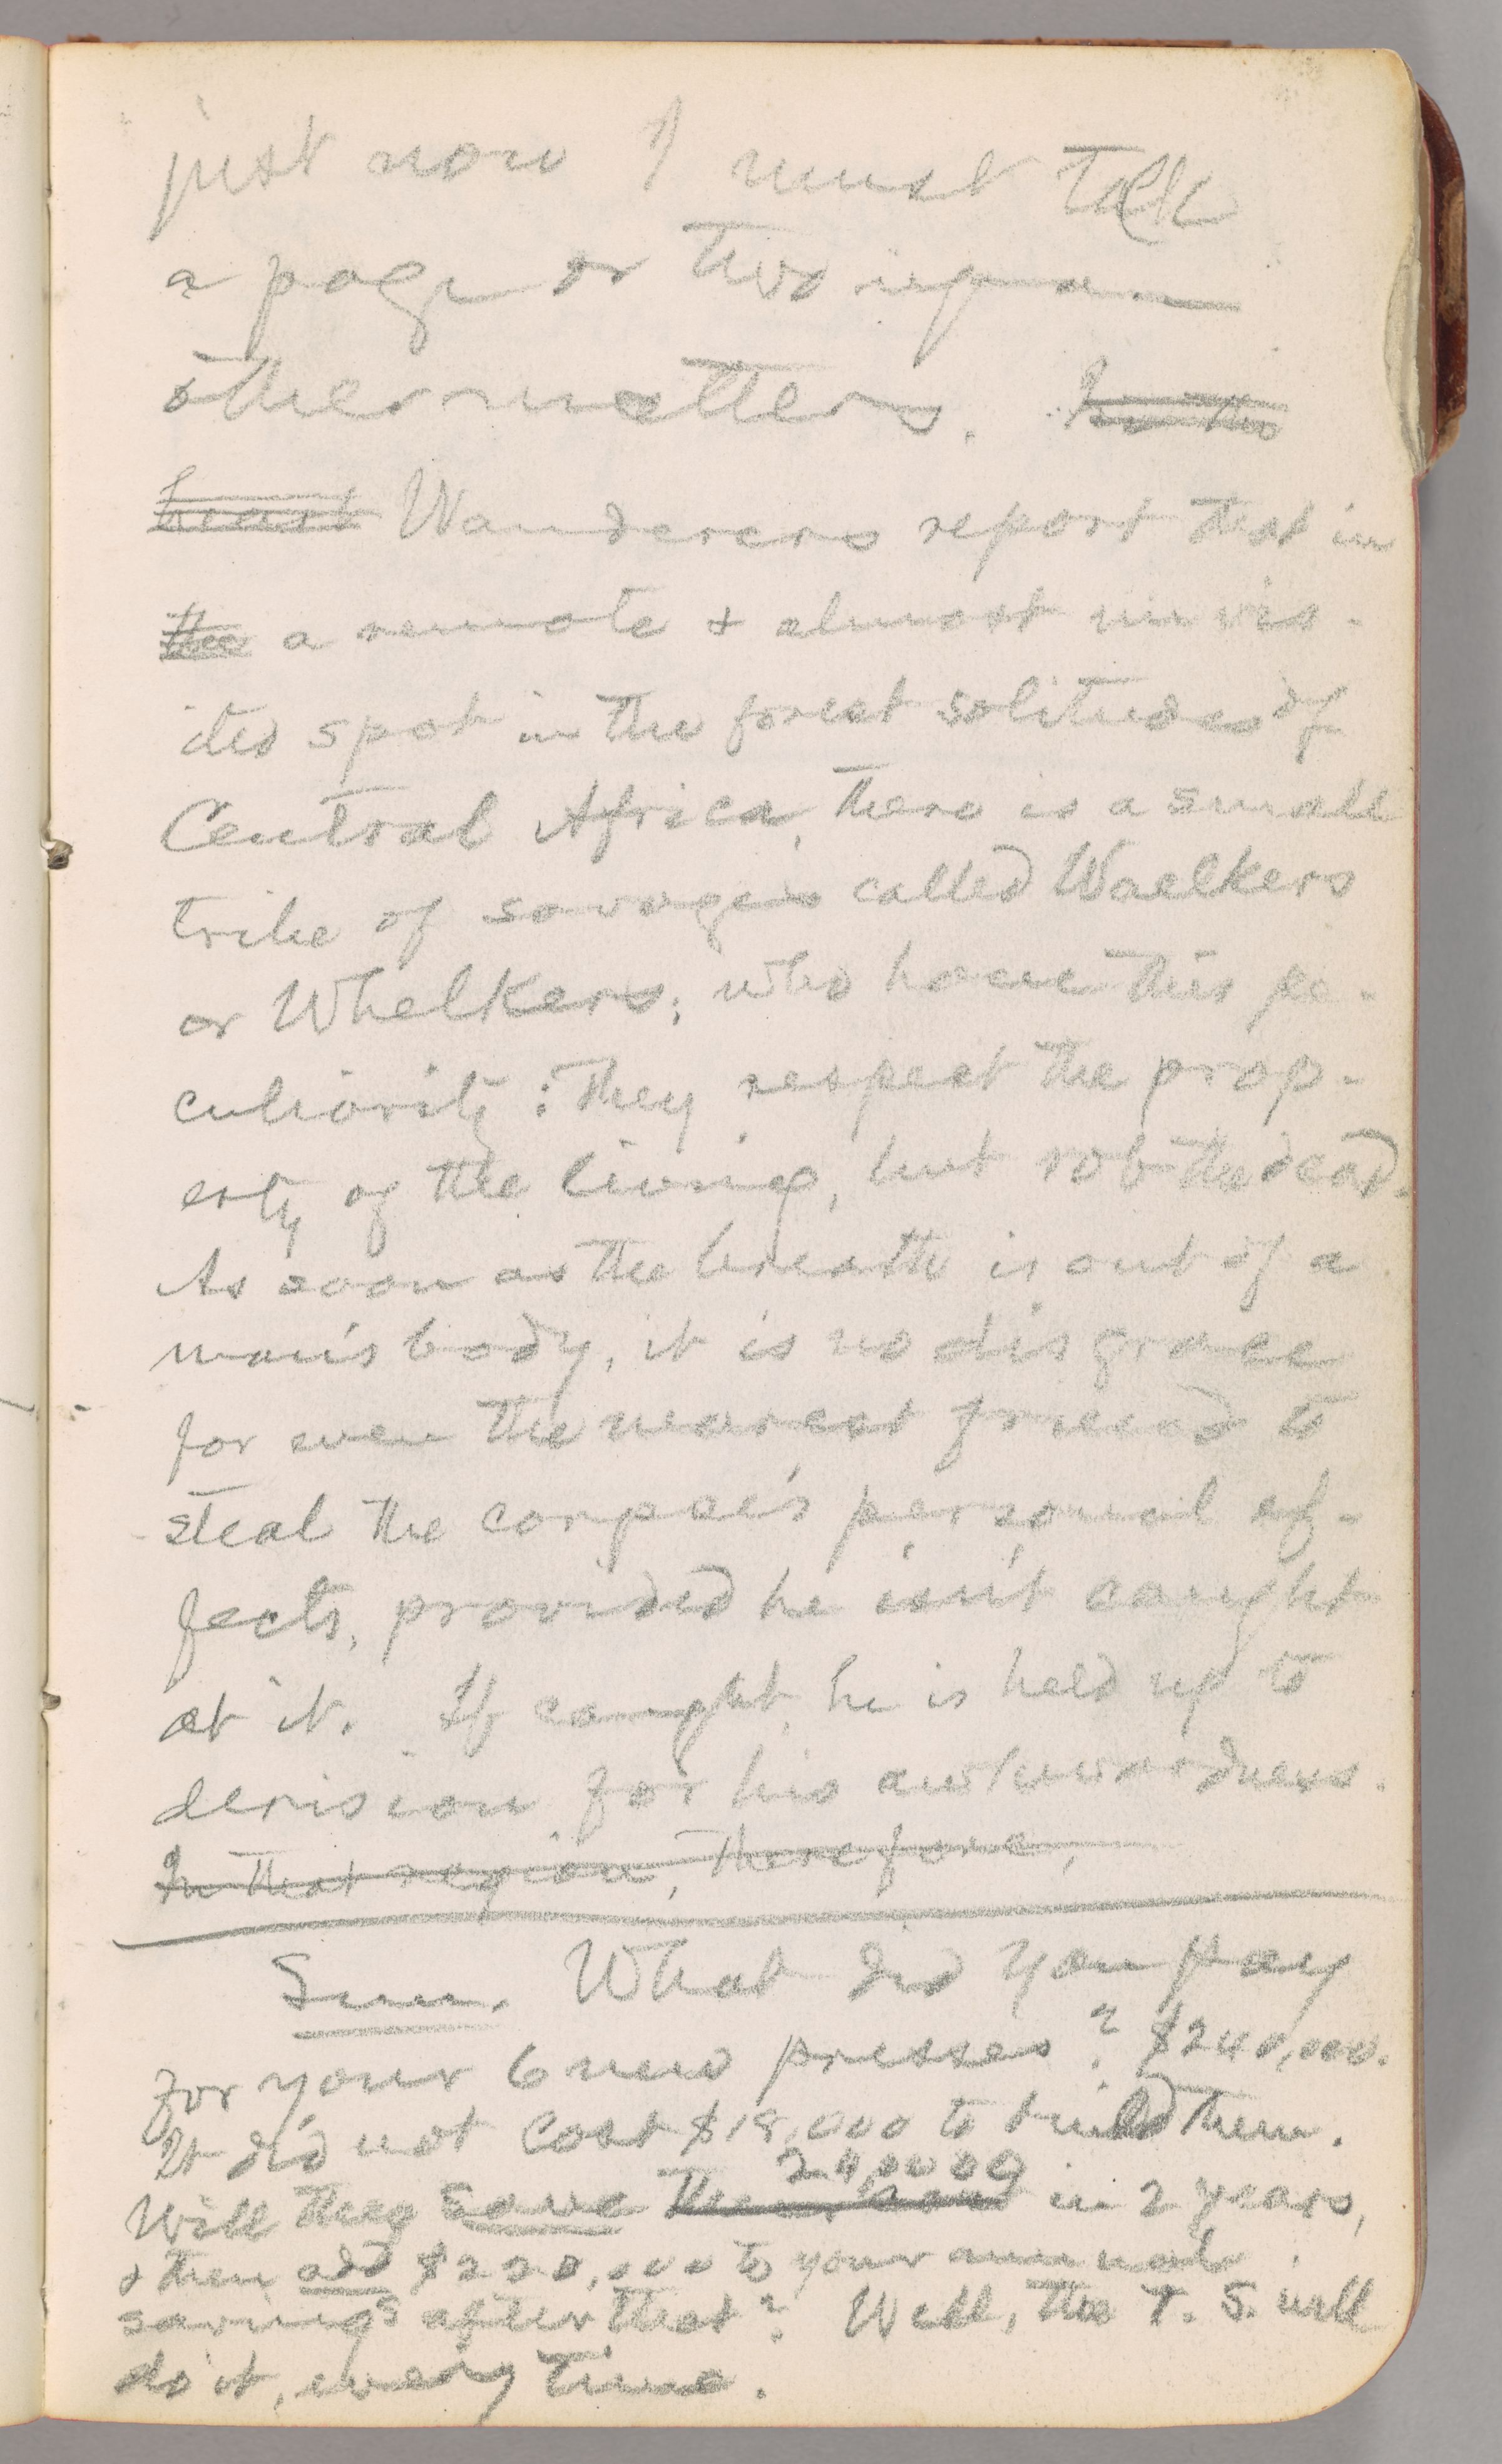 just now I must talk
a page or two upon
other matters. In the
heart Wanderers report that in
the a remote & almost unvis-
ited spot in the forest solitudes of
Central Africa, there is a small
tribe of savages called Waelkers
or Whelkers; who have this pe-
culiarity: They respect the prop-
erty of the living, but rob the dead.
As soon as the breath is out of a
man's body, it is no disgrace
for even the nearest friend to
steal the corpse's personal ef-
fects, provided he isn't caught
at it. If caught, he is held up to
derision for his awkwardness.
In that region, therefore,
Sun. What did you pay
for your 6 new presses? $240,000.
It did not cost $18,000 to build them.
240000
Will they save their cost in 2 years,
& then add $220,000 to your annual
savings after that? Well, the T. S. will
do it, every time.